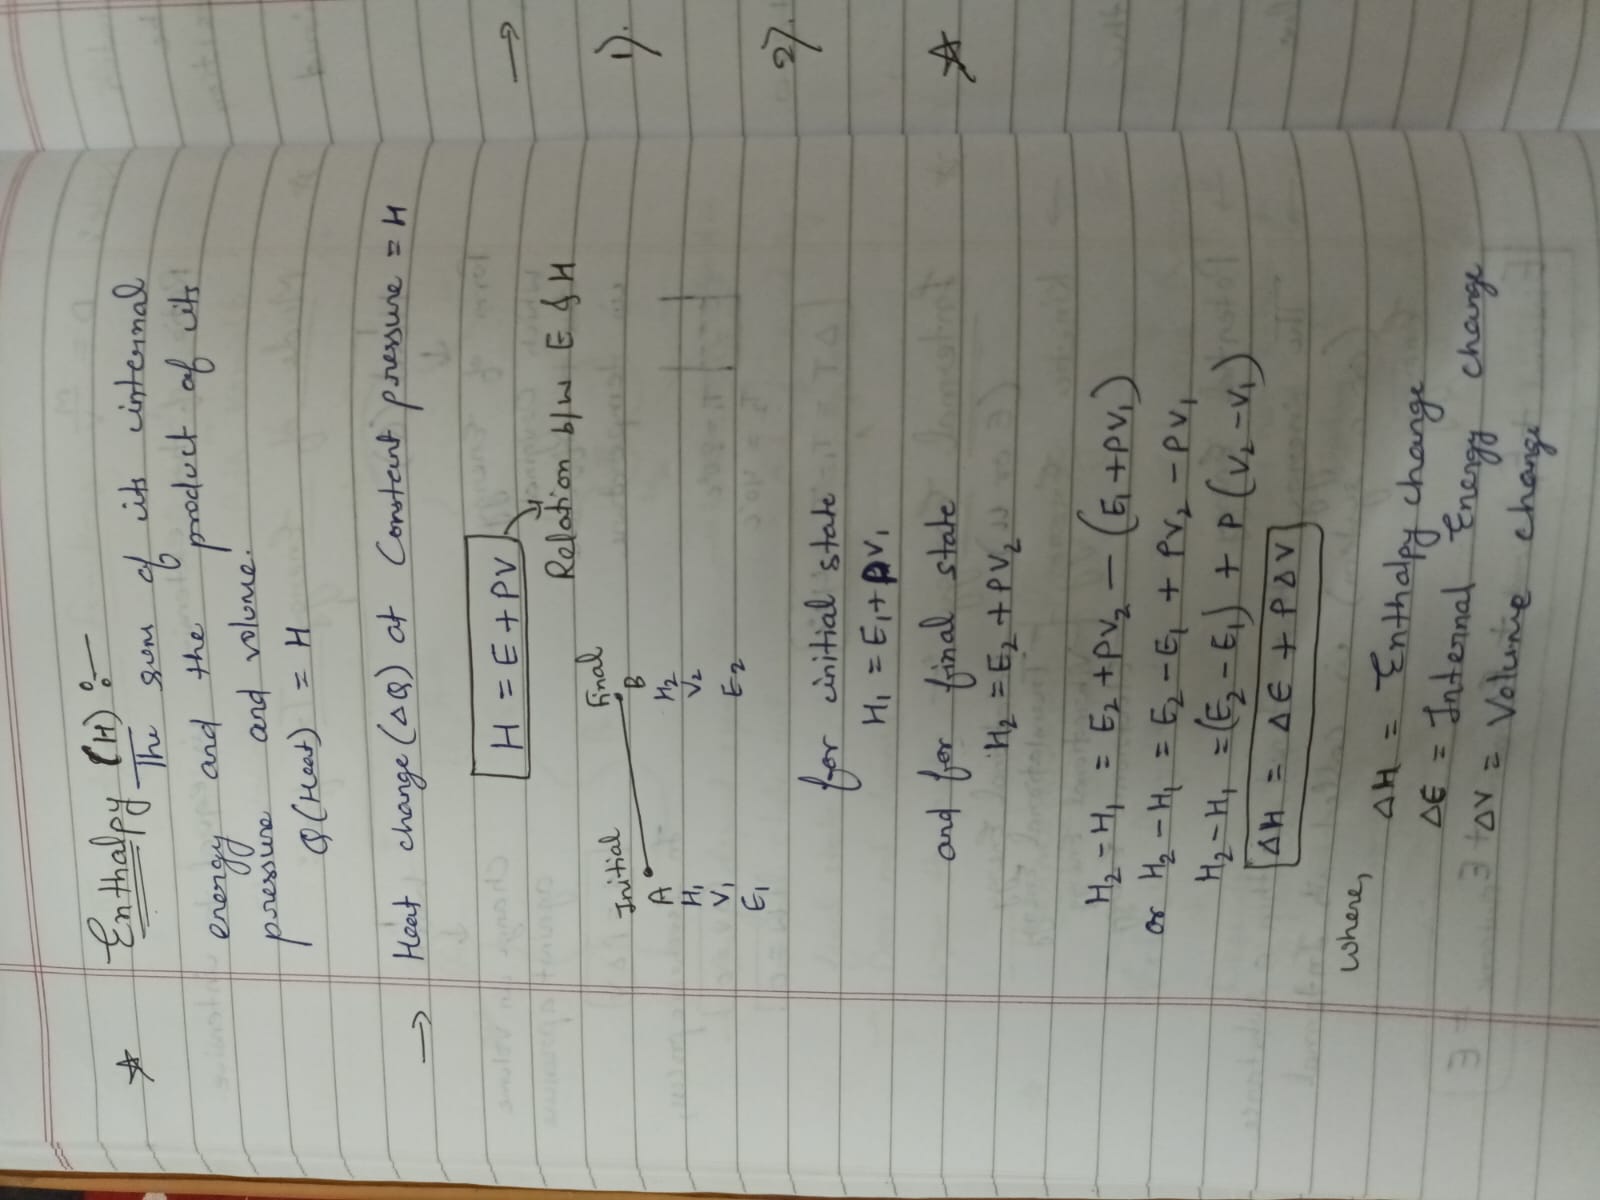 ☆ Enthalpy (H) :-
The sum of its internal
energy and the product of its
pressure and volume.
Q(Heat) = H
→ Heat change (ΔQ) at Constant pressure = H
H = E + PV
Relation b/w E & H
Initial Final
A B
H₁ H₂
V₁ V₂
E₁ E₂
for initial state
H₁ = E₁ + PV₁
and for final state
H₂ = E₂ + PV₂
H₂ - H₁ = E₂ + PV₂ - (E₁ + PV₁)
or H₂ - H₁ = E₂ - E₁ + PV₂ - PV₁
H₂ - H₁ = (E₂ - E₁) + P (V₂ - V₁)
ΔH = ΔE + PΔV
where,
ΔH = Enthalpy change
ΔE = Internal Energy change
ΔV = Volume change
→
1).
2).
☆